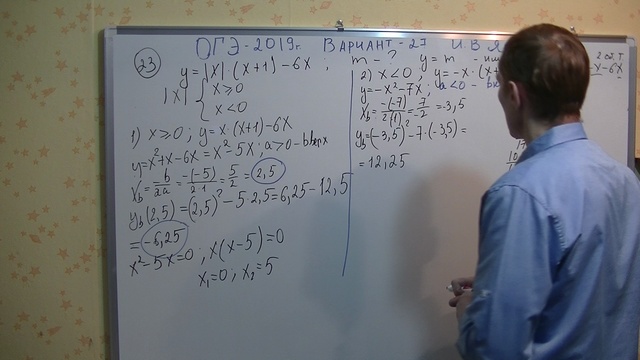 ОГЭ-2019г. ВАРИАНТ-27 И.В.Я
23
y = |x|·(x+1) - 6x ; m - ? y = m
|x| { x ⩾ 0
x < 0
1) x ⩾ 0 ; y = x·(x+1) - 6x
y = x² + x - 6x = x² - 5x ; a > 0 - вверх
x_b = -b/2a = -(-5)/2·1 = 5/2 = 2,5
y_b(2,5) = (2,5)² - 5·2,5 = 6,25 - 12,5
= -6,25
x² - 5x = 0 ; x(x-5) = 0
x₁ = 0 ; x₂ = 5
2) x < 0 y = -x·(x+
-x - 6x
y = -x² - 7x ; a < 0 -
x_b = -(-7)/2(-1) = 7/-2 = -3,5
y_b = -(-3,5)² - 7·(-3,5) =
= 12,25